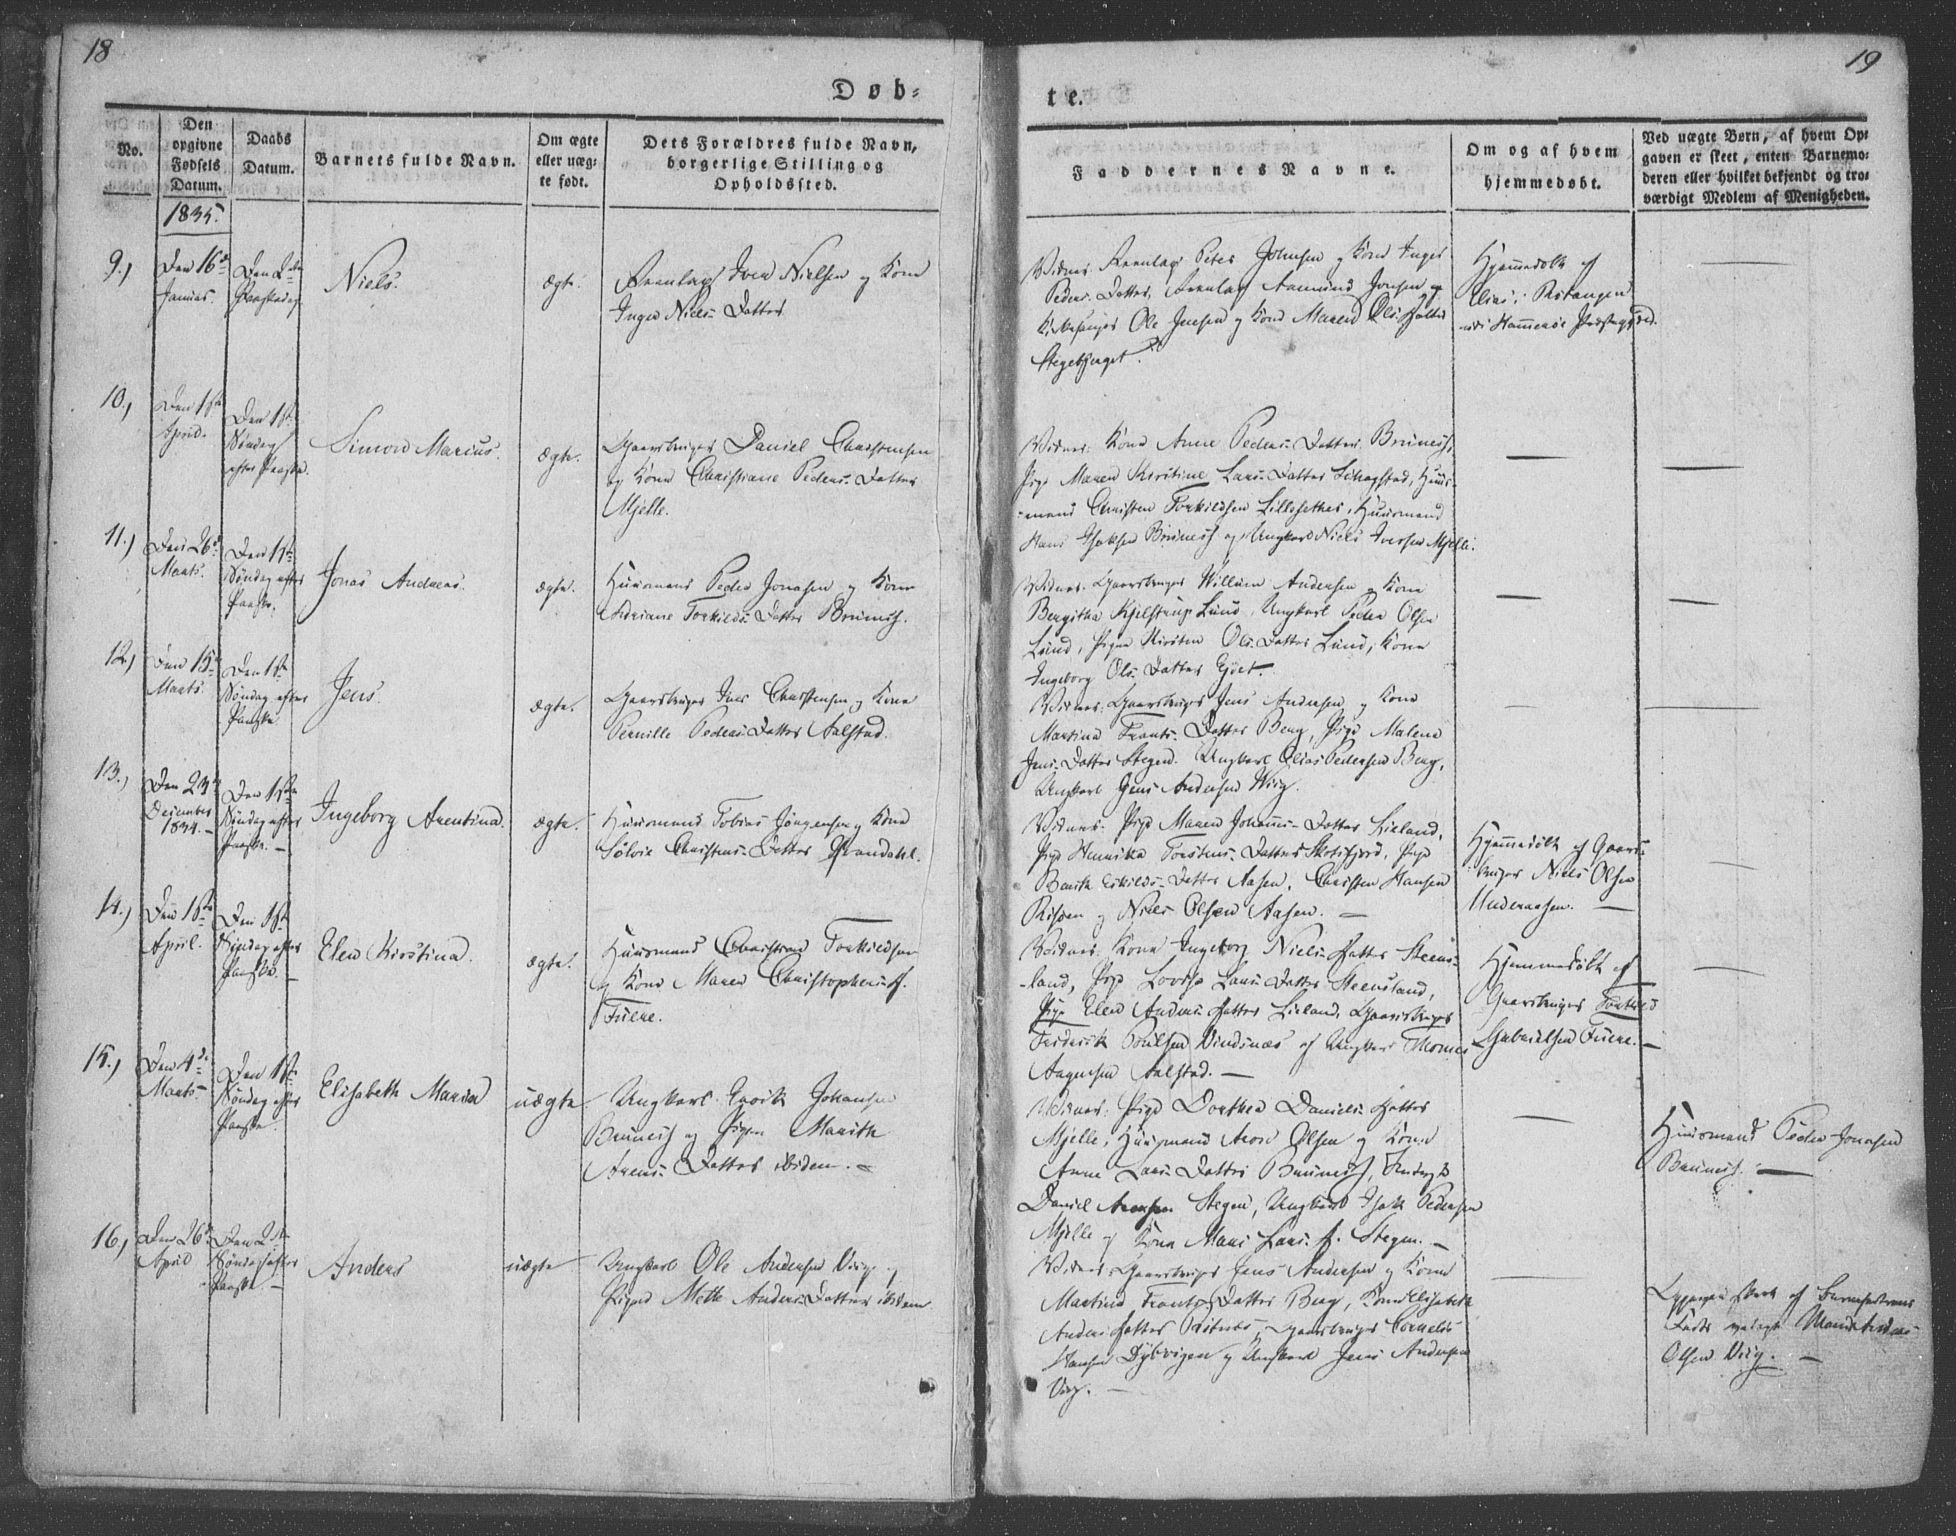 18
Døb-
No.
Den opgivne Fødsels Datum.
Daabs Datum.
Barnets fulde Navn.
Om ægte eller uæg- te født.
Dets Forældres fulde Navn, borgerlige Stilling og Opholdssted.
1835.
9.,
Den 16de
Januar.
Den 2den
Paaskedag
Niels.
ægte.
Iver Nielsen og Kone
Inger Niels Datter
10.,
Den 1ste
April.
Den 1ste
Søndag
efter Paaske.
Simon Marius.
ægte.
Gaardbruger Daniel Christensen
og Kone Christiane Peders Datter
Mjelle.
11.,
Den 26de
Marts.
Den 1ste
Søndag efter
Paaske.
Jonas Andreas.
ægte.
Huusmand Peder Jonasen og Kone
Adriane Torkilds Datter Bruness.
12.,
Den 15de
Marts.
Den 1ste
Søndag efter
Paaske.
Jens.
ægte.
Gaardbruger Iver Christensen og Kone
Pernille Peders Datter Aalstad.
13.,
Den 23de
December
1834.
Den 1ste
Søndag efter
Paaske.
Ingeborg Arentina.
ægte.
Huusmand Tobias Jørgensen og Kone
Sølvie Christens Datter
14.,
Den 1ste
April.
Den 1ste
Søndag efter
Paaske.
Elen Kirstina.
ægte.
Huusmand Christian Torkildsen
og Kone Maren Christophers d.
Fuere.
15.,
Den 4de
Marts
Den 1ste
Søndag efter
Paaske.
Elisabeth Maria
uægte.
Ungkarl Johansen
Bruness og Pigen Marith
Arens Datter ibidem.
16,
Den 26de
April
Den 2den
Søndag efter
Paaske.
Anders
uægte
Ungkarl Ole Andersen Viig og
Pigen Mette Anders Datter ibidem.
19
te.
Faddernes Navne.
Om og af hvem hjemmedøbt.
Ved uægte Børn, af hvem Op-
gaven er skeet, enten Barnemo-
deren eller hvilket bekjendt og tro-
værdigt Medlem af Menigheden.
Peter Johnsen og Kone Inger
Peders Datter, Aamund Jonsen og
Ole Jensen og Kone Maren Ols Datter
Stegebjerget.
Hjemmedøbt af
Elias
Kone Anne Peders Datter Bruness,
Pige Maren Kirstine Lars Datter Huus-
mand Christen Torkildsen Lillesetter, Huusmand
Hans Isaksen Bruness og Ungkarl Niels Iversen Mjelle.
Gaardbruger Willum Andersen og Kone
Bergitha Kjelstrup Lund, Ungkarl Peder Olsen
Lund, Pigen Kirsten Ols Datter Lund, Kone
Ingeborg Ols Datter
Gaardbruger Jens Andersen og Kone
Martina Frants Datter Berg, Pige Malena
Jens Datter Stegen. Ungkarl Elias Pedersen Berg,
Ungkarl Jens Andersen Wiig.
Pige Maren Johannes Datter Lieland,
Pige Henrikka Torstens Datter Skotsfjord, Pige
Eskilds Datter Aasen, Christen Hansen
og Niels Olsen Aasen.
Hjemmedøbt af Gaard-
bruger Niels Olsen
Underaasen.
Kone Ingeborg Niels Datter Steens-
land, Pige Lovise Lars Datter Steensland,
Pige Elen Anders Datter Lieland, Gaardbruger
Friderik Poulsen Vindsnæs og Ungkarl Thomas
Aagensen Aalstad.
Hjemmedøbt af
Gaardbruger Torkild
Gabrielsen Fuere.
Pige Dorthea Daniels Datter
Mjelle, Huusmand Aron Olsen og Kone
Anne Lars Datter Bruness,
Daniel Aronsen Stegen, Ungkarl Isak Pedersen
Mjelle og Kone Maren Lars d. Stegen.
Huusmand Peder Jonasen
Bruness.
Gaardbruger Jens Andersen og Kone
Martina Frants Datter Berg, Kone Elisabeth
Anders Datter Gaardbruger Cornelius
Hansen Dybvigen og Ungkarl Jens Andersen
Viig.
af Barnefaderens
Fader
Olsen Viig.